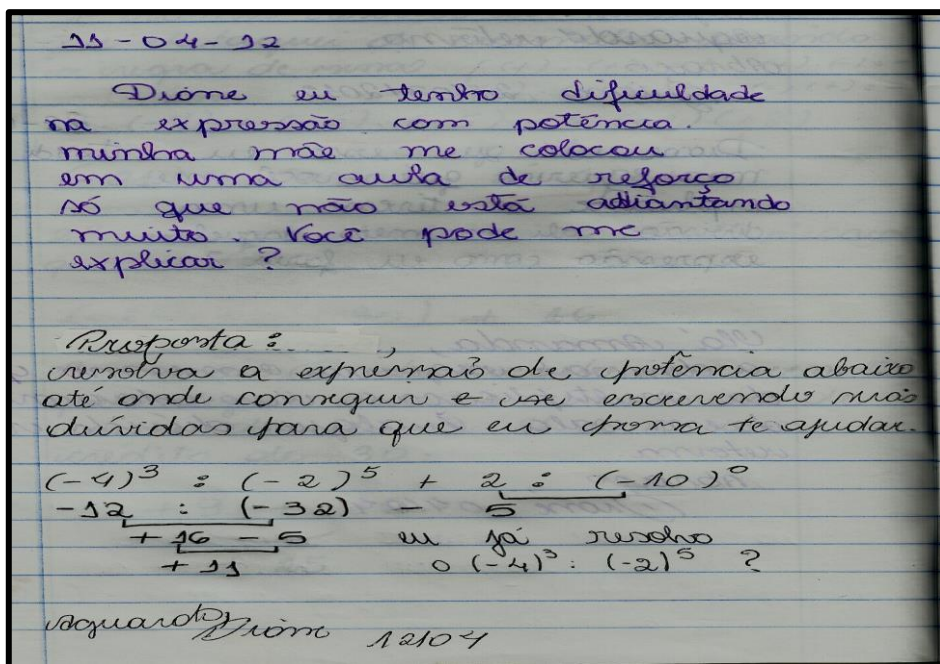 11-04-12
Dione eu tenho dificuldade
na expressão com potência.
minha mãe me colocou
em uma aula de reforço
só que não está adiantando
muito. Você pode me
explicar ?
Resposta : ,
resolva a expressão de potência abaixo
até onde conseguir e vá escrevendo suas
dúvidas para que eu possa te ajudar.
(-4)³ : (-2)⁵ + 2 : (-10)⁰
-12 : (-32) - 5
+ 16 - 5 eu já resolvo
+ 11 o (-4)³ : (-2)⁵ ?
Aguardo, Dione 12/04